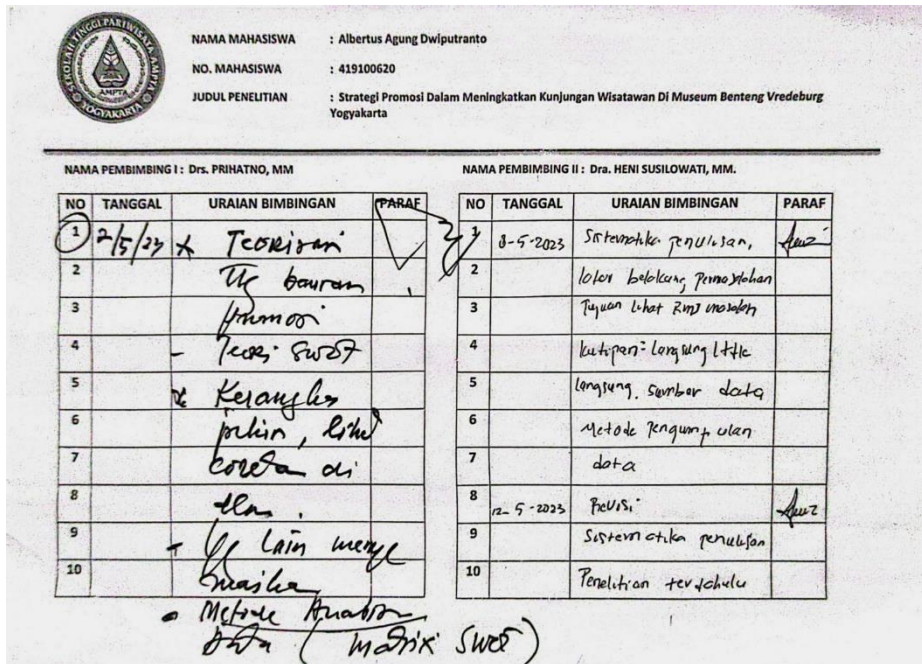 SEKOLAH TINGGI PARIWISATA AMPTA
AMPTA
YOGYAKARTA
NAMA MAHASISWA : Albertus Agung Dwiputranto
NO. MAHASISWA : 419100620
JUDUL PENELITIAN : Strategi Promosi Dalam Meningkatkan Kunjungan Wisatawan Di Museum Benteng Vredeburg
Yogyakarta
NAMA PEMBIMBING I : Drs. PRIHATNO, MM
NO TANGGAL URAIAN BIMBINGAN PARAF
1 2/5/23 Teorisasi
2 Ttg bauran
3 promosi
4 - Teori SWOT
5 Kerangka
6 pikir, lihat
7 coretan di
8
9 - Yg lain menye
10 suaikan
- Metode Analisa
Data (matrix SWOT)
NAMA PEMBIMBING II : Dra. HENI SUSILOWATI, MM.
NO TANGGAL URAIAN BIMBINGAN PARAF
1 8-5-2023 Sistematika penulisan,
2 latar belakang permasalahan
3 Tujuan lihat Rms masalah
4 kutipan - langsung & ttk
5 langsung. sumber data
6 Metode Pengumpulan
7 data
8 12-5-2023 Revisi
9 Sistematika penulisan
10 Penelitian terdahulu